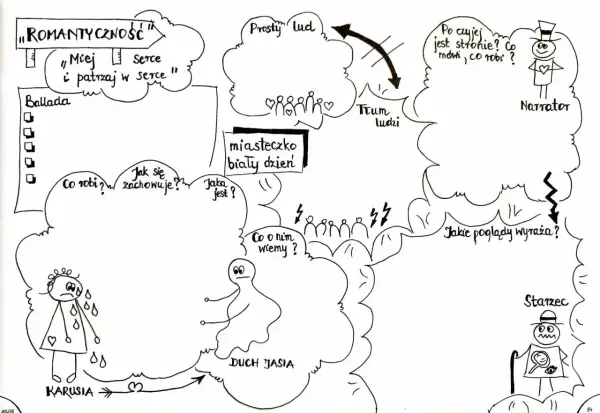 „ROMANTYCZNOŚĆ"
„Miej serce
i patrzaj w serce"
Ballada
Prosty lud
Tłum
ludzi
Po czyjej
jest stronie? Co
mówi, co robi?
Narrator
miasteczko
biały dzień
Co robi?
Jak się
zachowuje?
Jaka
jest?
Co o nim
wiemy?
Jakie poglądy wyraża?
Starzec
DUCH JASIA
KARUSIA